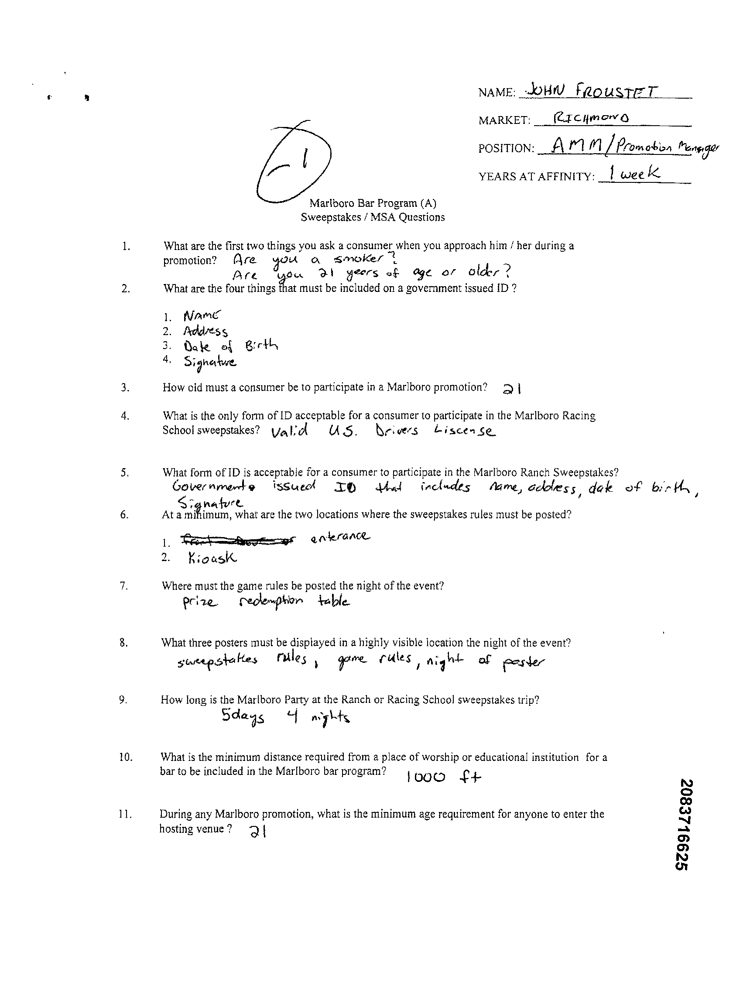 NAME: JOHN FROUSTET
MARKET: RICHMOND
POSITION: AMM/Promotion Manager
YEARS AT AFFINITY: 1 week
-1
Marlboro Bar Program (A)
Sweepstakes / MSA Questions
1. What are the first two things you ask a consumer when you approach him / her during a
promotion? Are you a smoker?
Are you 21 years of age or older?
2. What are the four things that must be included on a government issued ID ?
1. NAME
2. Address
3. Date of Birth
4. Signature
3. How old must a consumer be to participate in a Marlboro promotion? 21
4. What is the only form of ID acceptable for a consumer to participate in the Marlboro Racing
School sweepstakes? Valid U.S. Drivers Liscense
5. What form of ID is acceptable for a consumer to participate in the Marlboro Ranch Sweepstakes?
Government issued ID that includes name, address, date of birth,
Signature
6. At a minimum, what are the two locations where the sweepstakes rules must be posted?
1. enterance
2. Kioask
7. Where must the game rules be posted the night of the event?
prize redemption table
8. What three posters must be displayed in a highly visible location the night of the event?
sweepstakes rules, game rules, night of poster
9. How long is the Marlboro Party at the Ranch or Racing School sweepstakes trip?
5days 4 nights
10. What is the minimum distance required from a place of worship or educational institution for a
bar to be included in the Marlboro bar program? 1000 ft
11. During any Marlboro promotion, what is the minimum age requirement for anyone to enter the
hosting venue ? 21
2083716625